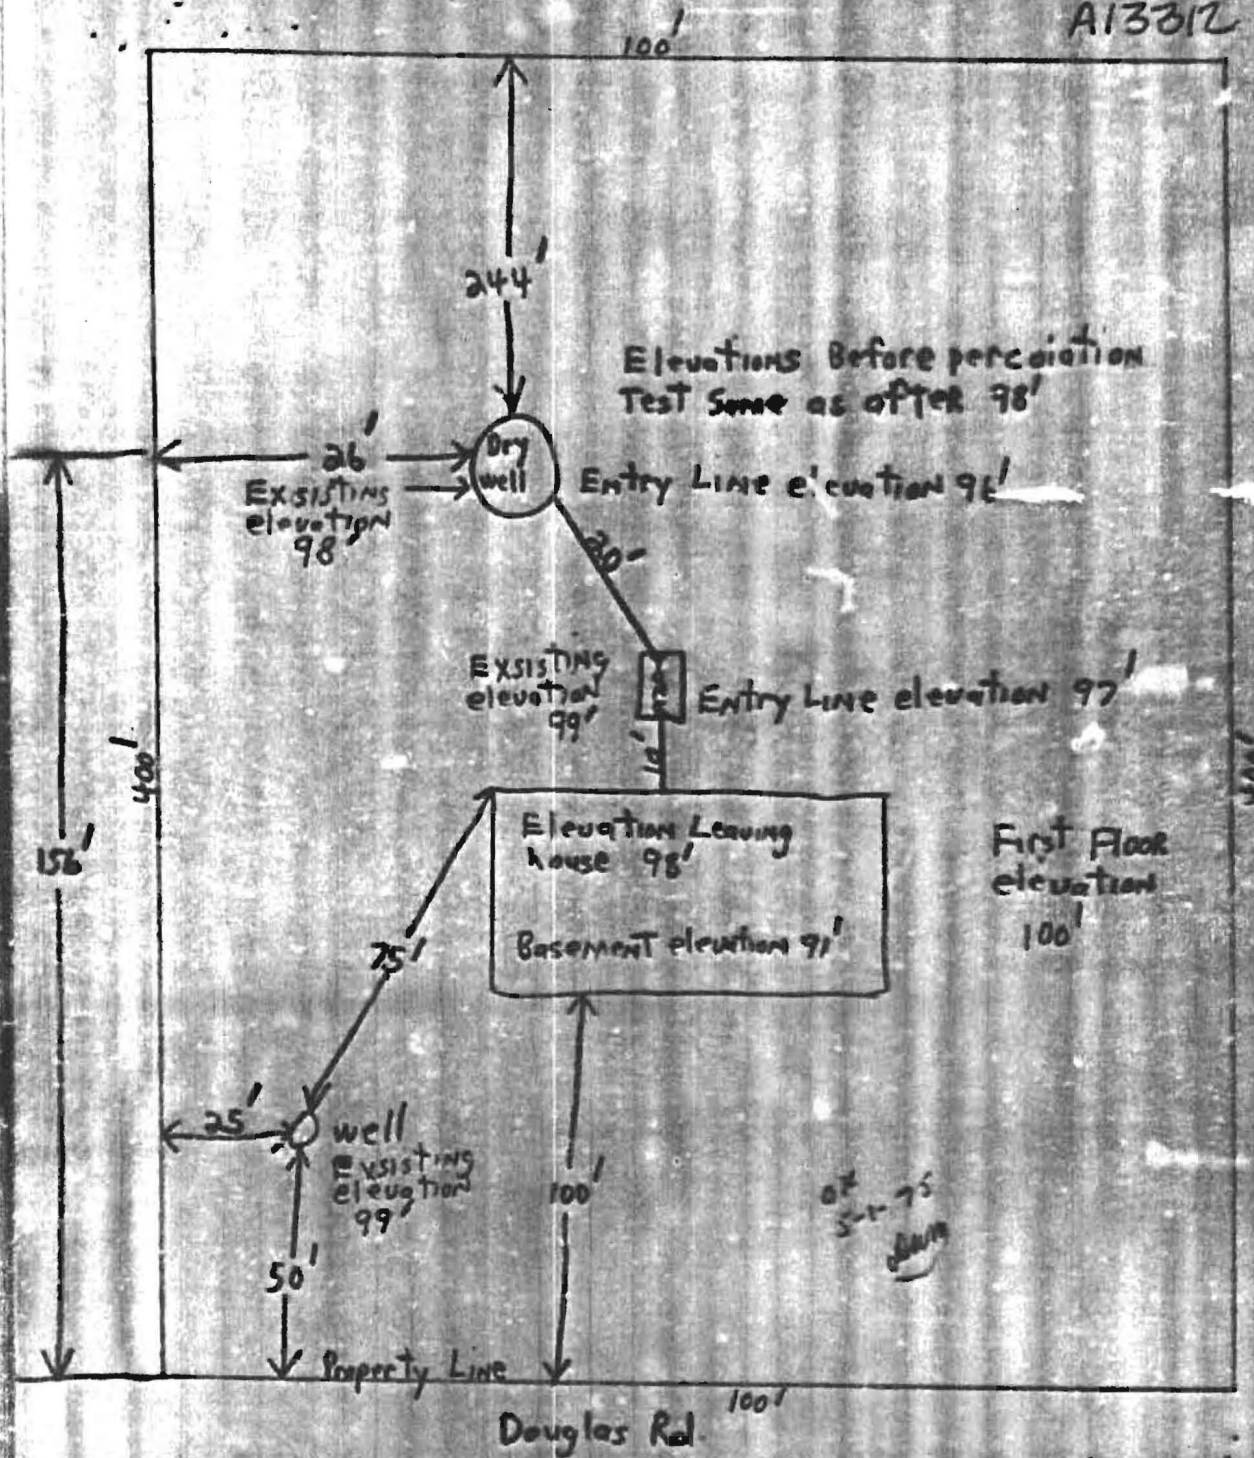 A13312
100'
244'
Elevations Before percolation
Test Same as after 98'
26'
Dry
well
Exsisting
elevation
98'
Entry Line elevation 96'
Exsisting
elevation
99'
Entry Line elevation 97'
10'
400'
156'
Elevation Leaving
house 98'
Basement elevation 91'
First Floor
elevation
100'
75'
25'
well
Exsisting
elevation
99'
50'
100'
OK
5-1-75
Property Line
100'
Douglas Rd.